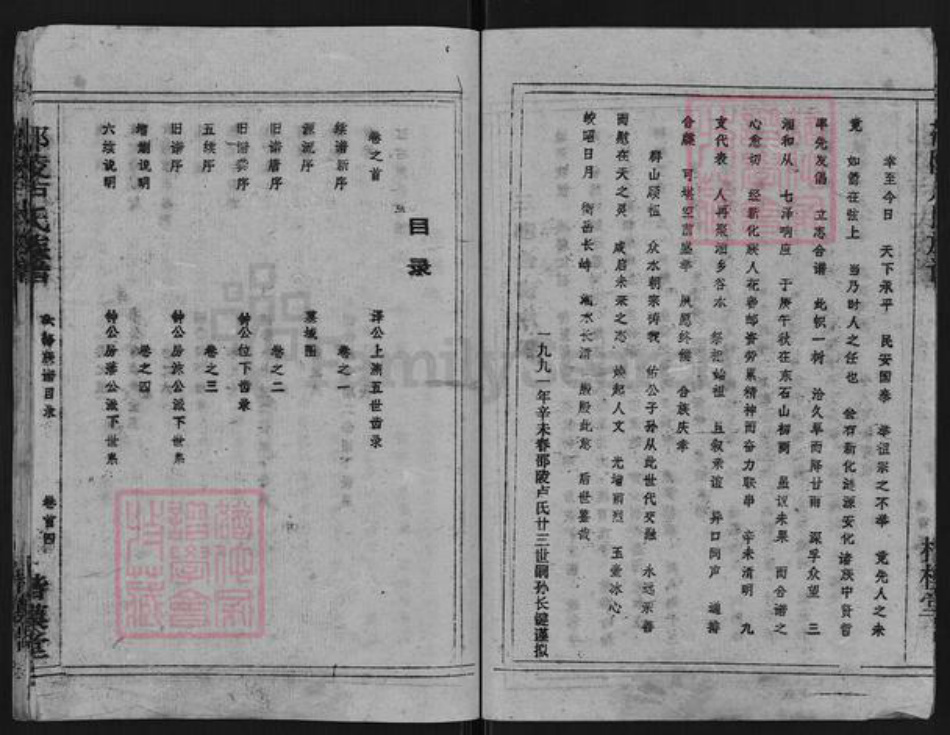 幸至今日　天下承平　民安国泰　举祖宗之不举　竟先人之未
竟　如箭在弦上　当乃时人之任也　幸有新化涟源安化诸族中贤哲
率先发倡　立志合谱　此帜一树　洽久旱而降甘雨　深孚众望　三
湘和从　七泽响应　于庚午秋在东石山初商　虽议未果　而合谱之
心愈切　经新化族人花费邮资劳累精神而奋力联串　辛未清明　九
支代表　人再聚湘乡谷水　祭祀始祖　且叙亲谊　异口同声　通谱
合牒　可堪空前盛举　夙愿终偿　合族庆幸
群山顾祖　众水朝宗　佑公子孙从此世代交融　永远亲善
而慰在天之灵　咸启未来之志　焕起人文　光增前烈　玉壶冰心
皎昭日月　衡岳长峙　湘水长清　殷殷此意　后世鉴哉
一九九一年辛未春邵陵卢氏廿三世嗣孙长键谨拟
目录
卷之首
续谱新序
源流序
旧谱唐序
旧谱娄序
五续序
旧谱序
增删说明
六续说明
泽公上溯五世齿录
卷之一
墓城图
卷之二
钟公位下齿录
卷之三
钟公房派公派下世系
卷之四
钟公房公派下世系
邵陵卢氏族谱
六修族谱目录
卷首四